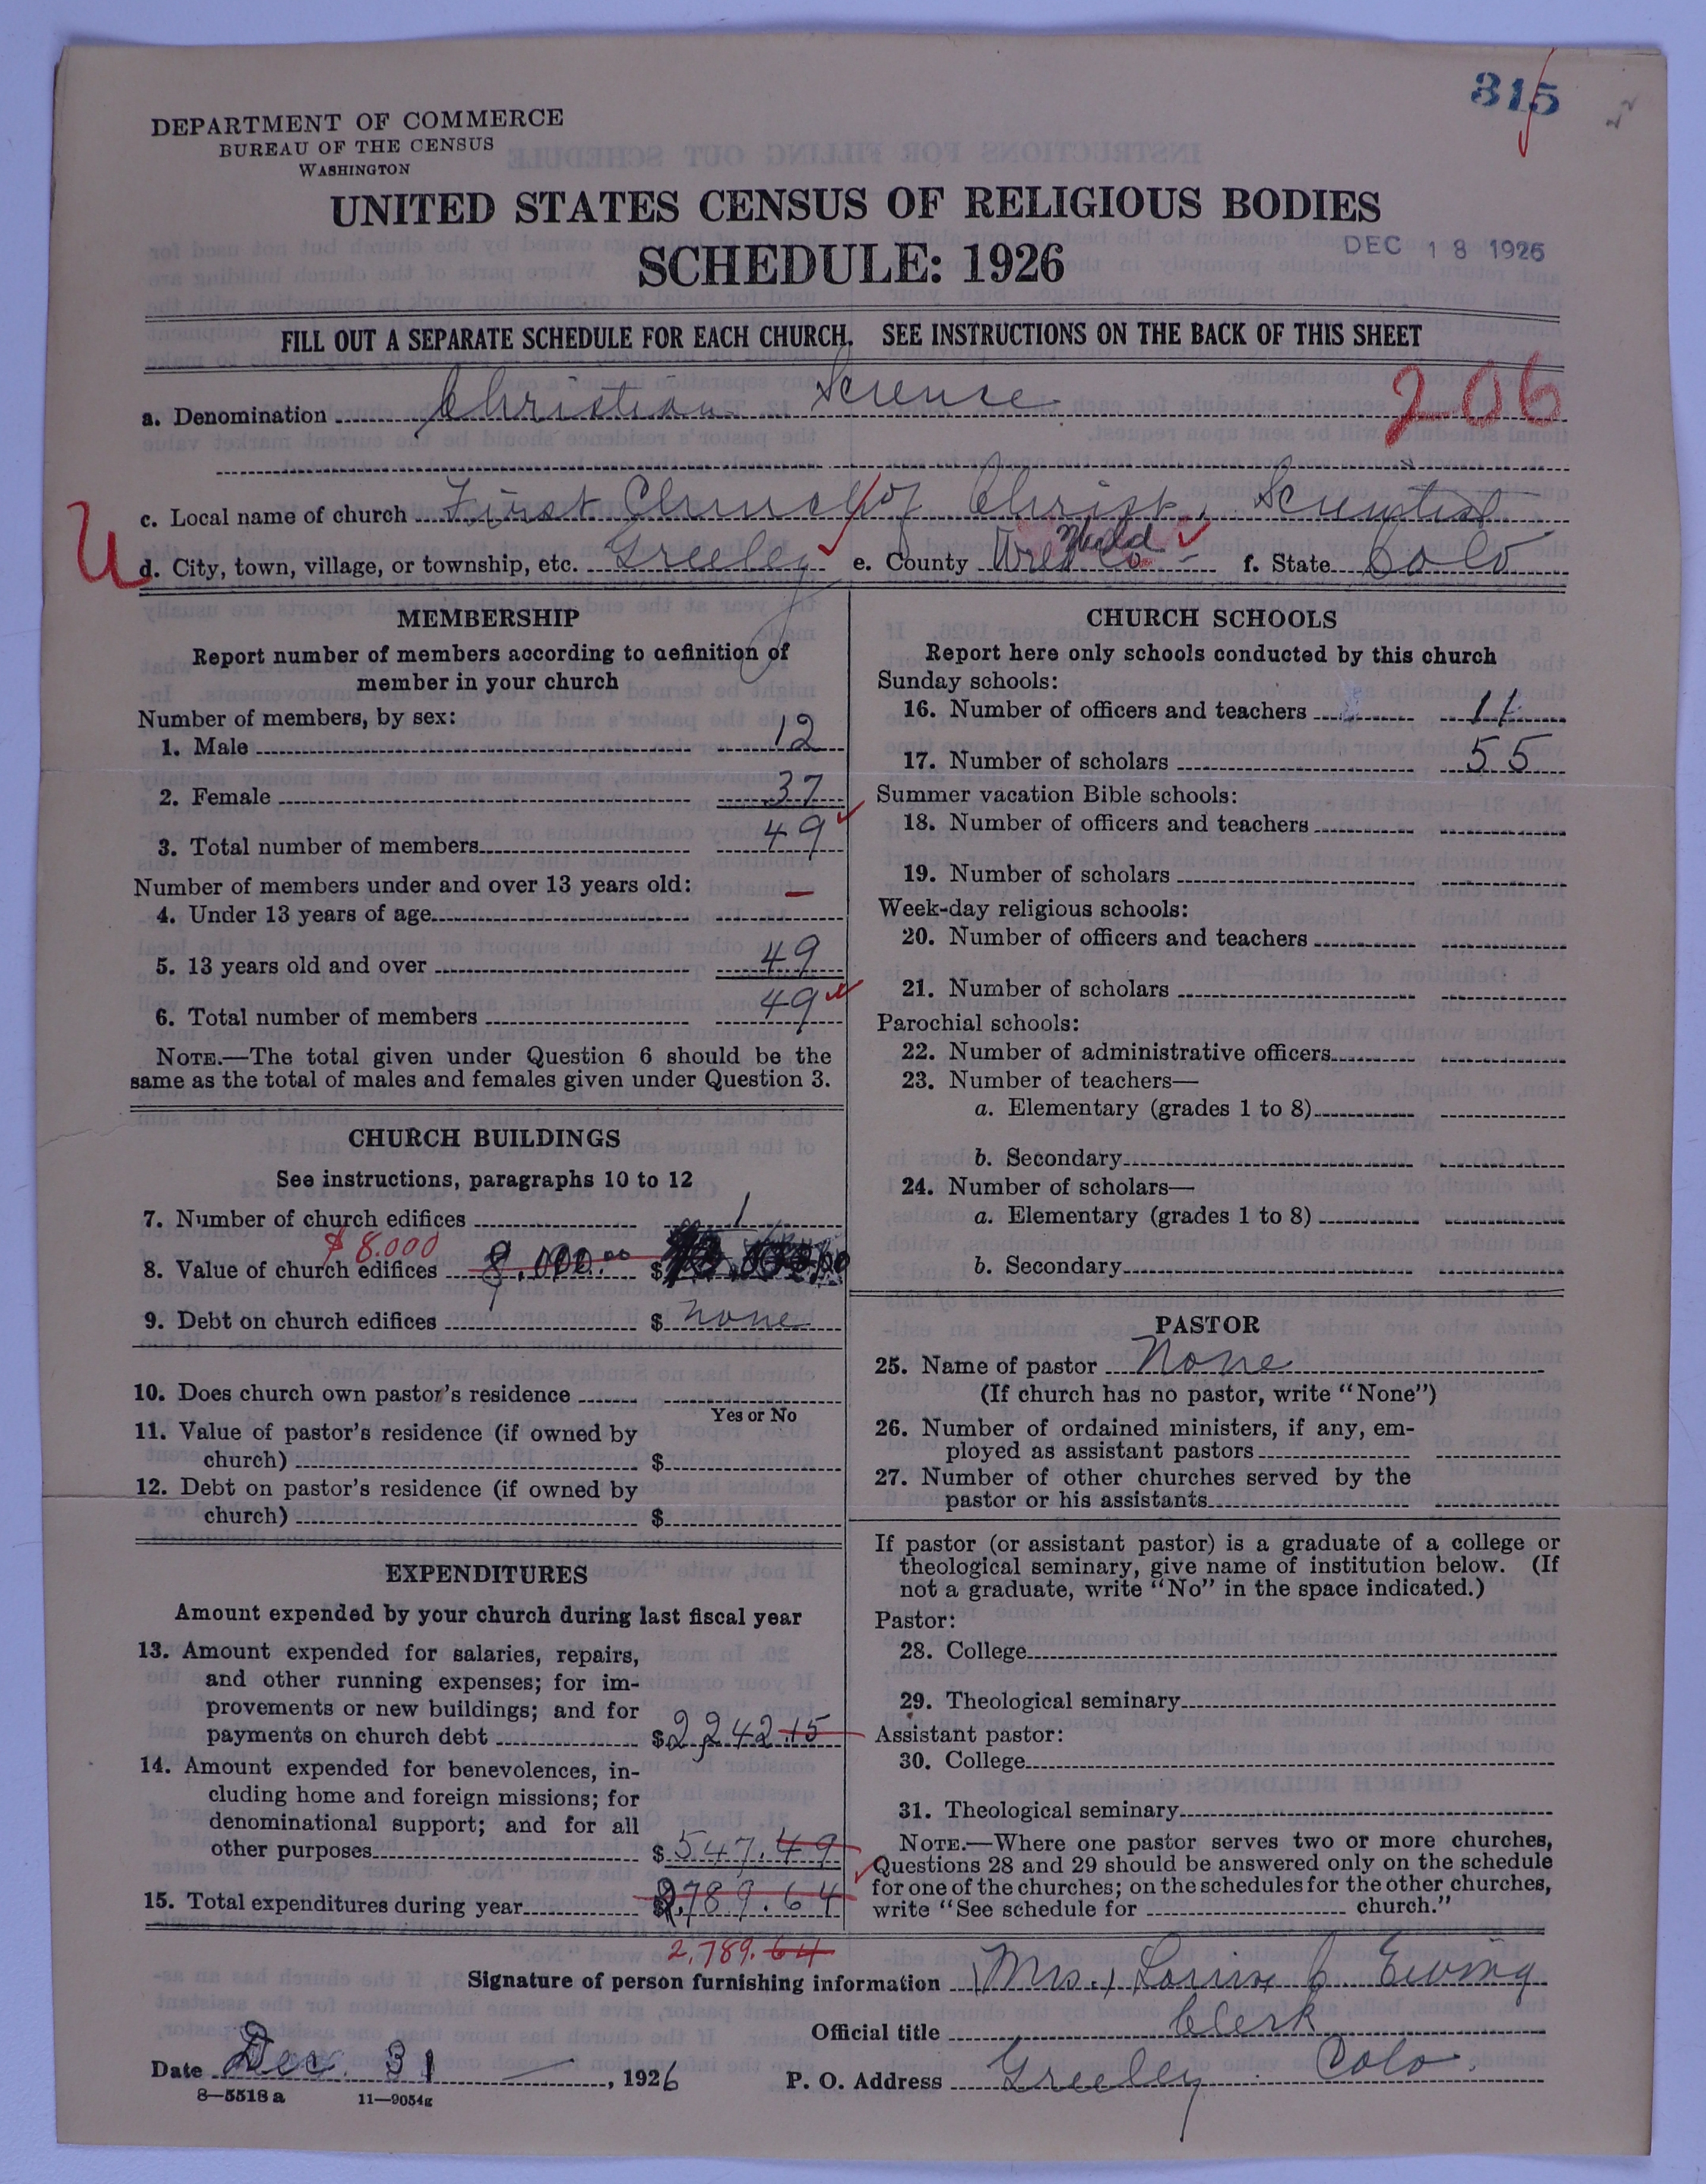 315
DEPARTMENT OF COMMERCE
BUREAU OF THE CENSUS
WASHINGTON
UNITED STATES CENSUS OF RELIGIOUS BODIES
SCHEDULE: 1926
DEC 18 1926
FILL OUT A SEPARATE SCHEDULE FOR EACH CHURCH. SEE INSTRUCTIONS ON THE BACK OF THIS SHEET
206
a. Denomination Christian Science
c. Local name of church First Church of Christ, Scientist
U
d. City, town, village, or township, etc. Greeley e. County Weld f. State Colo
MEMBERSHIP
Report number of members according to definition of
member in your church
Number of members, by sex:
1. Male 12
2. Female 37
3. Total number of members 49
Number of members under and over 13 years old:
4. Under 13 years of age —
5. 13 years old and over 49
6. Total number of members 49
NOTE.—The total given under Question 6 should be the
same as the total of males and females given under Question 3.
CHURCH BUILDINGS
See instructions, paragraphs 10 to 12
7. Number of church edifices 1
$8.000
8. Value of church edifices 8,000.00 $
9. Debt on church edifices $ none
10. Does church own pastor's residence
Yes or No
11. Value of pastor's residence (if owned by
church) $
12. Debt on pastor's residence (if owned by
church) $
EXPENDITURES
Amount expended by your church during last fiscal year
13. Amount expended for salaries, repairs,
and other running expenses; for im-
provements or new buildings; and for
payments on church debt $2,242.15
14. Amount expended for benevolences, in-
cluding home and foreign missions; for
denominational support; and for all
other purposes $547.49
15. Total expenditures during year $2,789.64
2,789.64
CHURCH SCHOOLS
Report here only schools conducted by this church
Sunday schools:
16. Number of officers and teachers 11
17. Number of scholars 55
Summer vacation Bible schools:
18. Number of officers and teachers
19. Number of scholars
Week-day religious schools:
20. Number of officers and teachers
21. Number of scholars
Parochial schools:
22. Number of administrative officers
23. Number of teachers—
a. Elementary (grades 1 to 8)
b. Secondary
24. Number of scholars—
a. Elementary (grades 1 to 8)
b. Secondary
PASTOR
25. Name of pastor None
(If church has no pastor, write "None")
26. Number of ordained ministers, if any, em-
ployed as assistant pastors
27. Number of other churches served by the
pastor or his assistants
If pastor (or assistant pastor) is a graduate of a college or
theological seminary, give name of institution below. (If
not a graduate, write "No" in the space indicated.)
Pastor:
28. College
29. Theological seminary
Assistant pastor:
30. College
31. Theological seminary
NOTE.—Where one pastor serves two or more churches,
Questions 28 and 29 should be answered only on the schedule
for one of the churches; on the schedules for the other churches,
write "See schedule for church."
Signature of person furnishing information (Mrs.) Louise C. Ewing
Official title Clerk
Date Dec. 31 —, 1926 P. O. Address Greeley Colo.
8—5518 a 11—9054g